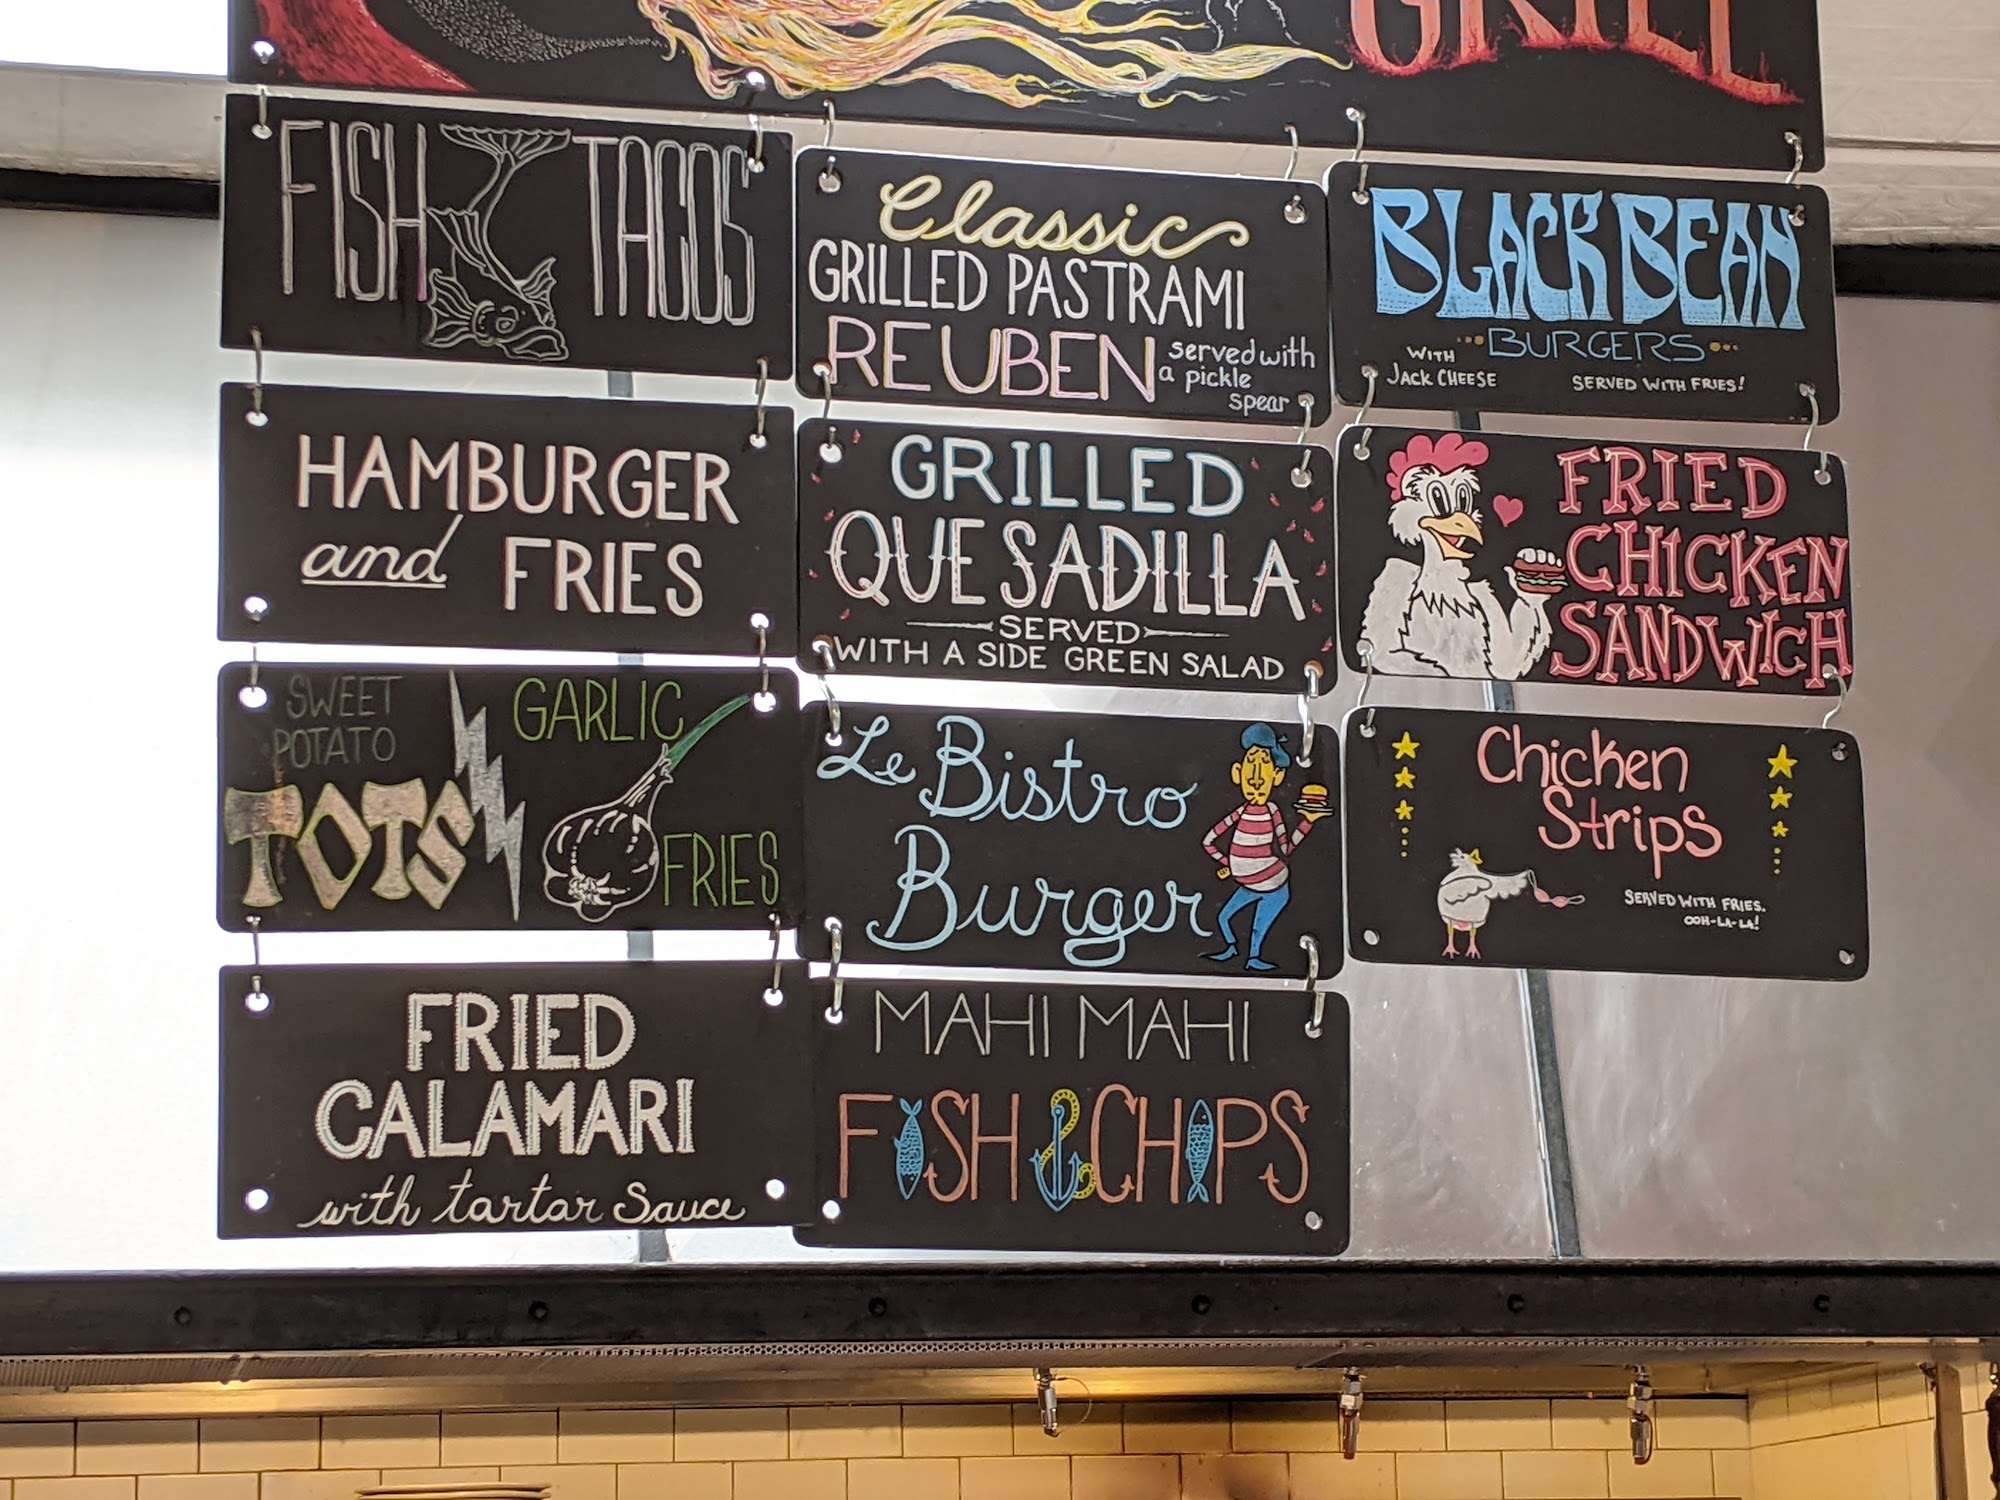 GRILL
FISH TACOS
HAMBURGER
and FRIES
SWEET
POTATO
TOTS
GARLIC
FRIES
FRIED
CALAMARI
with tartar sauce
Classic
GRILLED PASTRAMI
REUBEN
served with
a pickle
spear
GRILLED
QUESADILLA
SERVED
WITH A SIDE GREEN SALAD
Le Bistro
Burger
MAHI MAHI
FISH & CHIPS
BLACK BEAN
BURGERS
WITH
JACK CHEESE
SERVED WITH FRIES!
FRIED
CHICKEN
SANDWICH
Chicken
Strips
SERVED WITH FRIES.
OOH-LA-LA!